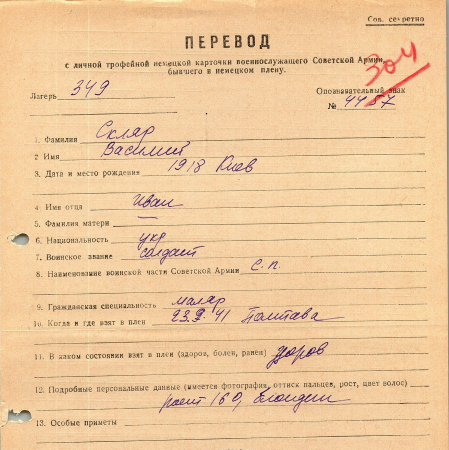 Сов. секретно
ПЕРЕВОД
с личной трофейной немецкой карточки военнослужащего Советской Армии,
бывшего в немецком плену.
304
Лагерь 349
Опознавательный знак
№ 4467
1. Фамилия Скляр
2 Имя Василий
3. Дата и место рождения 1918 Киев
4. Имя отца Иван
5. Фамилия матери —
6. Национальность укр
7. Воинское звание солдат
8. Наименование воинской части Советской Армии С. п.
9. Гражданская специальность маляр
10. Когда и где взят в плен 23.9.41 Полтава
11. В каком состоянии взят в плен (здоров, болен, ранен) здоров
12. Подробные персональные данные (имеется фотография, оттиск пальцев, рост, цвет волос)
рост 160, блондин
13. Особые приметы